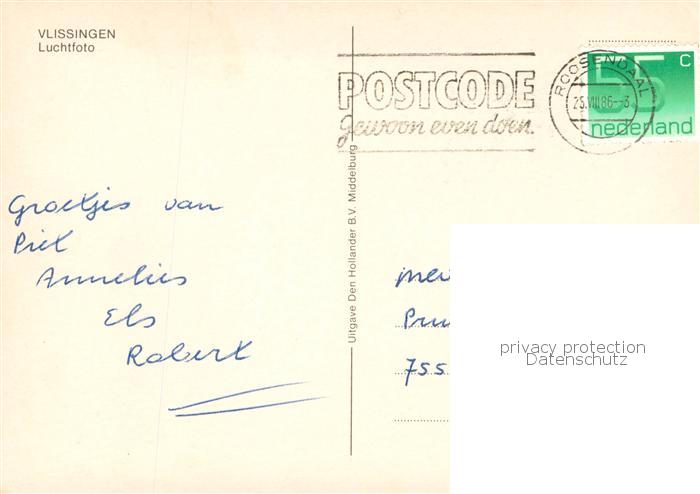 VLISSINGEN
Luchtfoto
POSTCODE
gewoon even doen.
ROOSENDAAL
25.VIII.86-3
55 c
nederland
Groetjes van
Piet
Annelies
Els
Robert
Uitgave Den Hollander B.V. Middelburg
755
privacy protection
Datenschutz